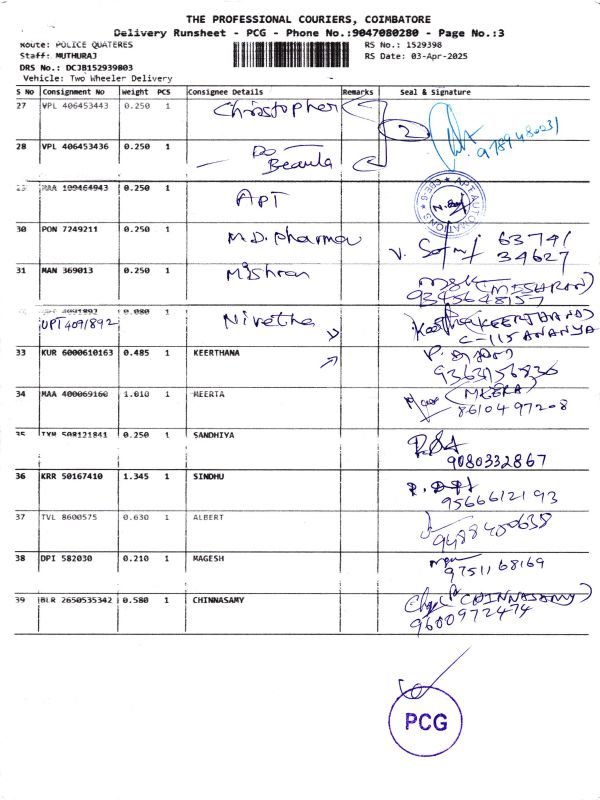 THE PROFESSIONAL COURIERS, COIMBATORE
Delivery Runsheet - PCG - Phone No.:9047080280 - Page No.:3
Route: POLICE QUATERES RS No.: 1529398
Staff: MUTHURAJ RS Date: 03-Apr-2025
DRS No.: DCJB152939803
Vehicle: Two Wheeler Delivery
S No Consignment No Weight PCS Consignee Details Remarks Seal & Signature
27 VPL 406453443 0.250 1 Christopher
2
9789480031
28 VPL 406453436 0.250 1 Do
Beaula
29 MAA 109464943 0.250 1 APT
APT AUTOMATIONS CBE-6
30 PON 7249211 0.250 1 M.D. Pharma 63741
34627
31 MAN 369013 0.250 1 Mishran (MISHRAN)
9345648157
0.080 1 Nivetha (KEERTHANA)
UPT 4091892 C-115 ANANYA
33 KUR 6000610163 0.485 1 KEERTHANA
9363156836
34 MAA 400069160 1.010 1 MEERTA (MEERA)
8610497208
35 508121841 0.250 1 SANDHIYA
9080332867
36 KRR 50167410 1.345 1 SINDHU
9566612193
37 TVL 8600575 0.630 1 ALBERT
9488400638
38 DPI 582030 0.210 1 MAGESH
9751168169
39 BLR 2650535342 0.580 1 CHINNASAMY (CHINNASAMY)
9600972474
PCG